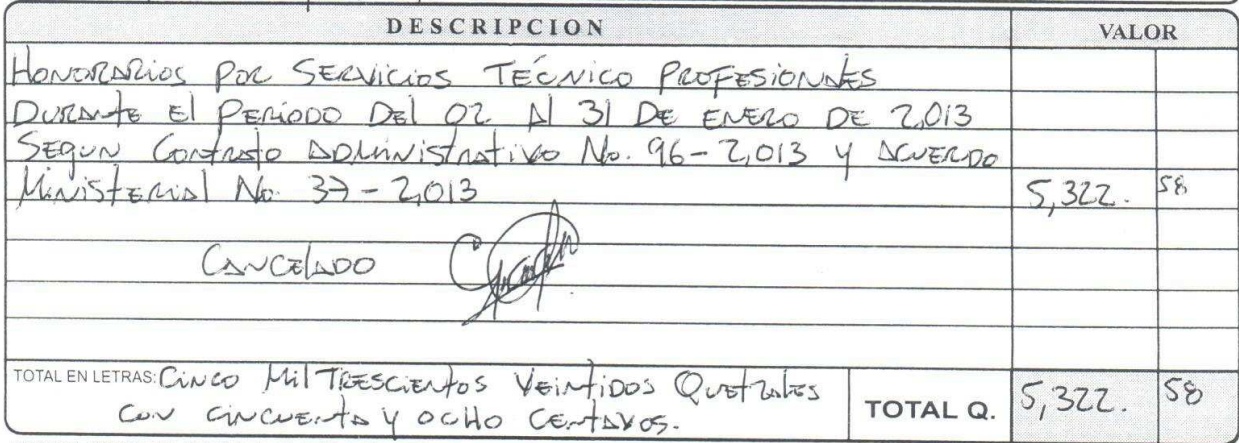 DESCRIPCION VALOR
HONORARIOS POR SERVICIOS TÉCNICO PROFESIONALES
DURANTE El PERIODO DEl 02 Al 31 DE ENERO DE 2,013
SEGUN CONTRATO ADMINISTRATIVO No. 96-2,013 y ACUERDO
MINISTERIAl No. 37-2,013 5,322. 58
CANCELADO
TOTAL EN LETRAS: CINCO Mil TRESCIENTOS VEINTIDOS QUETZALES
CON CINCUENTA Y OCHO CENTAVOS. TOTAL Q. 5,322. 58